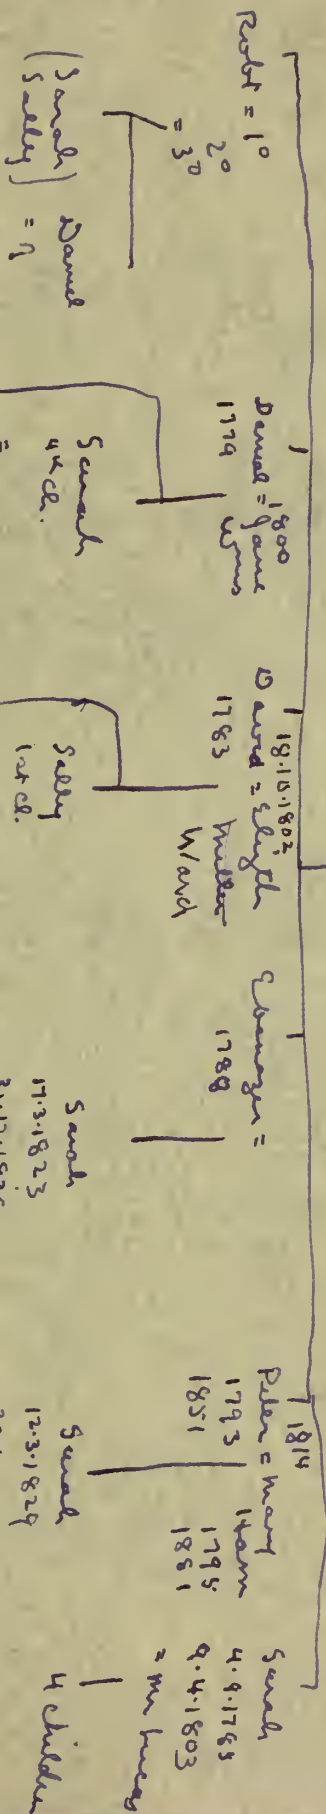 Robt = 1°
2°
= 3°
(Sarah) Daniel
(Sally) = ?
1800
Daniel = Jane
1779 Wms
Sarah
4th Ch.
=
18.10.1802
David = Elizth
1783 Miller
Ward
Sally
1st Cl.
Ebenezer =
1788
Sarah
17.3.1823
1814
Peter = Mary
1793 Ham
1851 1795
1881
Sarah
12.3.1829
Sarah
4.9.1785
9.4.1803
= Mr Lucas
4 children